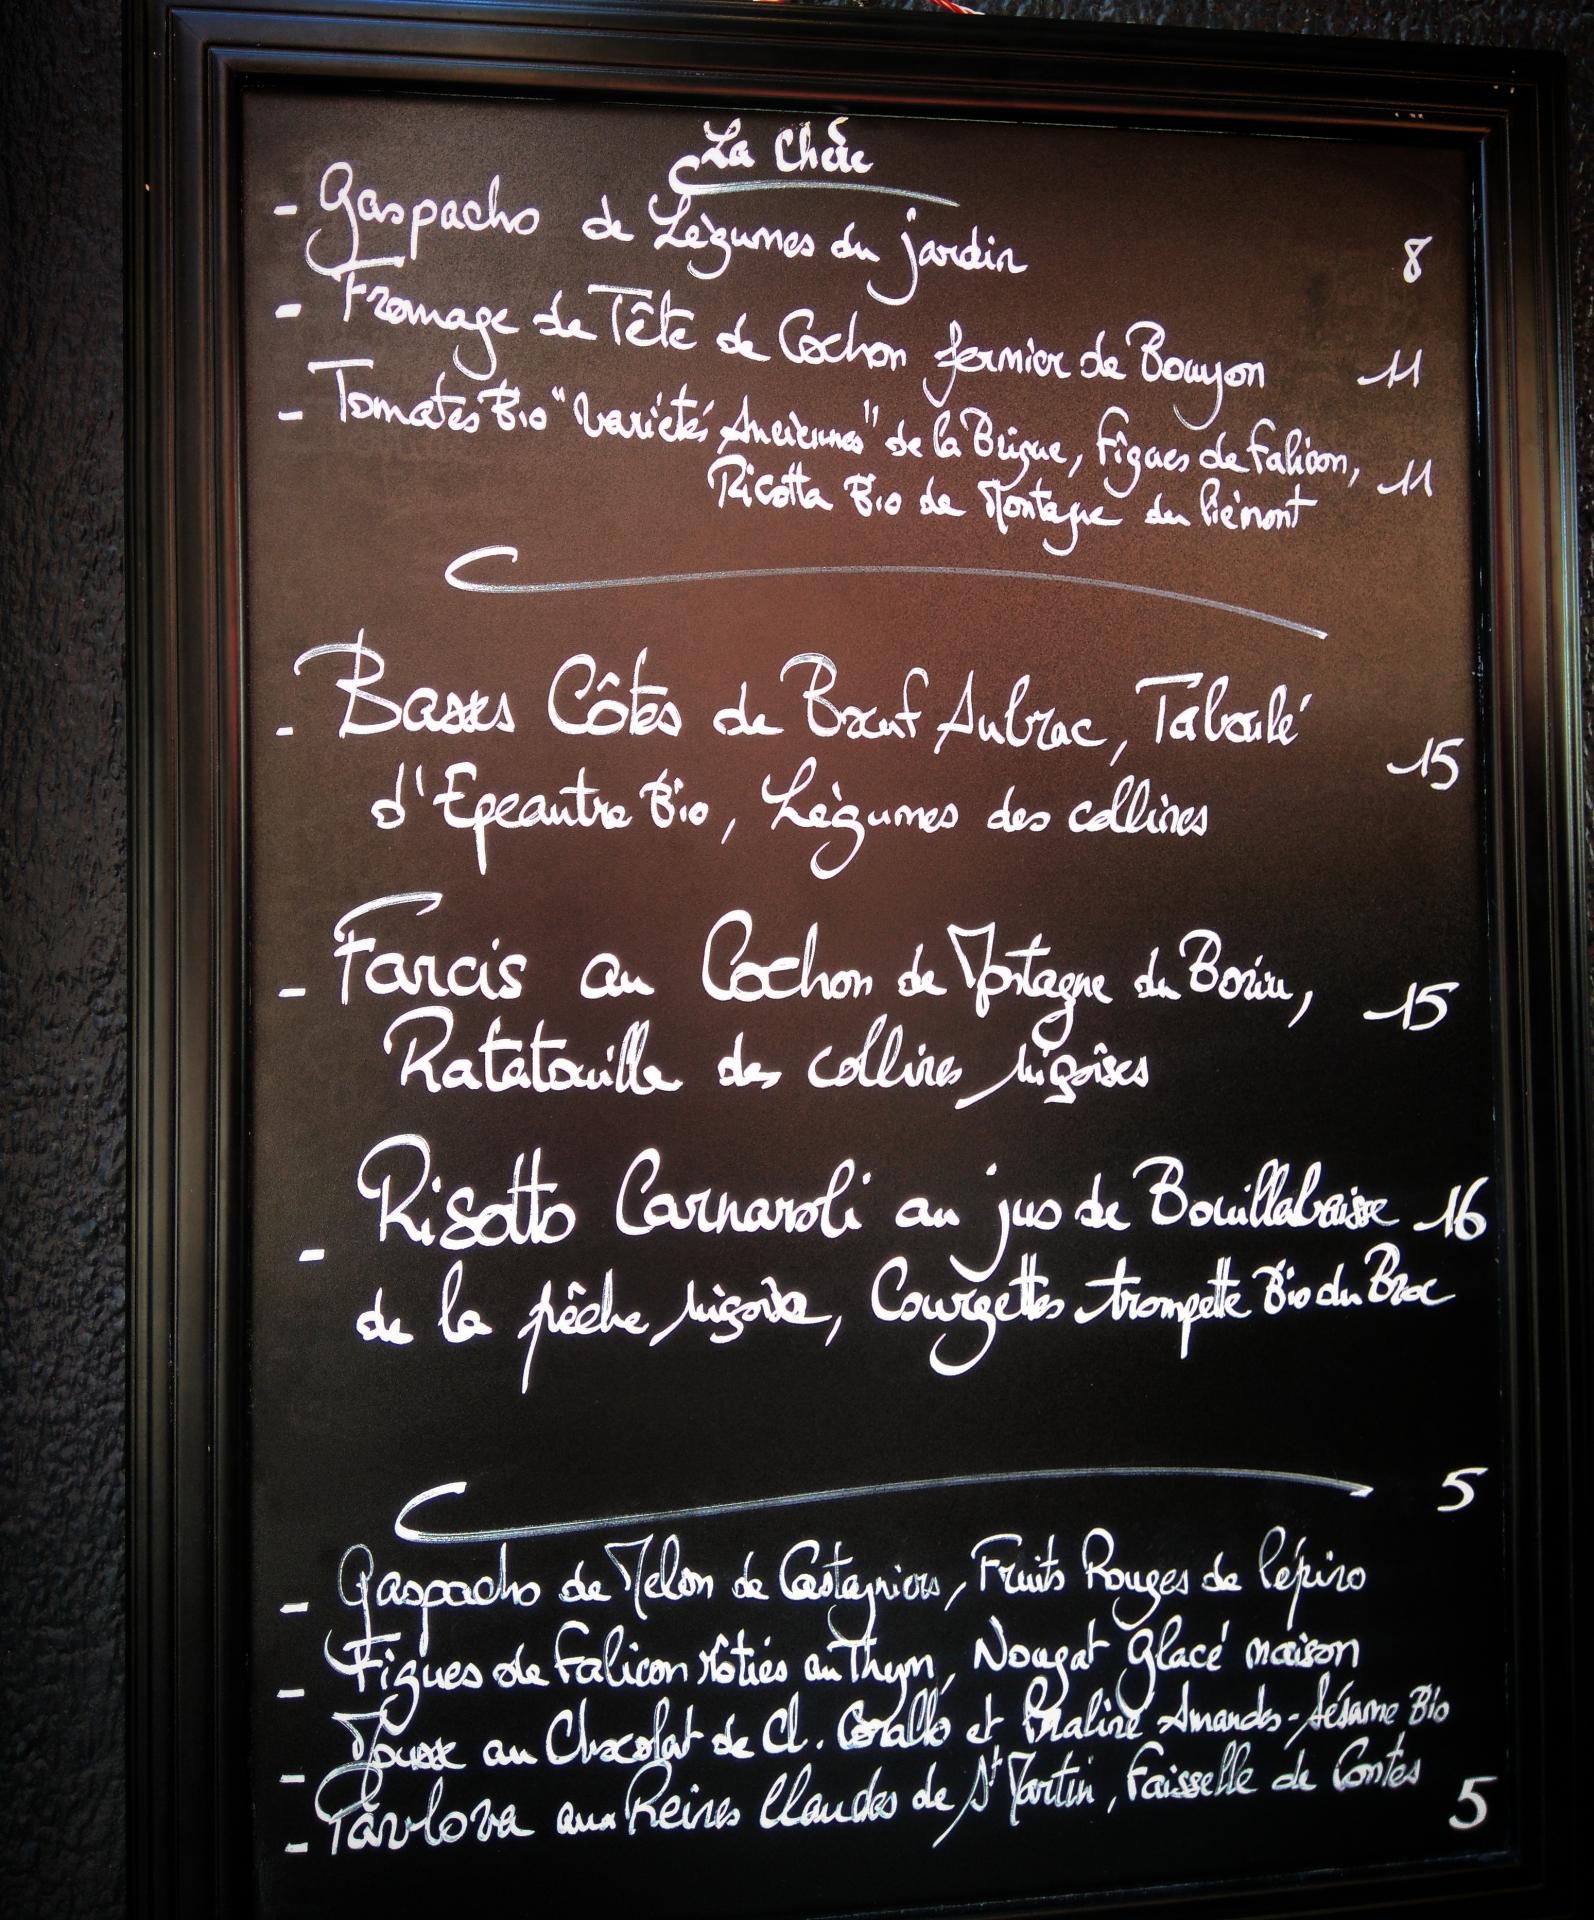 La Chère
- Gaspacho de Légumes du jardin 8
- Fromage de Tête de Cochon fermier de Bouyon 11
- Tomates Bio "Variétés Anciennes" de la Brigue, Figues de Falicon, 11
Ricotta Bio de Montagne du Piémont
- Basses Côtes de Bœuf Aubrac, Taboulé 15
d'Epeautre Bio, Légumes des collines
- Farcis au Cochon de Montagne du Boréon, 15
Ratatouille des collines niçoises
- Risotto Carnaroli au jus de Bouillabaisse 16
de la pêche niçoise, Courgettes trompette Bio du Broc
5
- Gaspacho de Melon de Castagniers, Fruits Rouges de Pépino
- Figues de Falicon rôties au Thym, Nougat Glacé maison
- Mousse au Chocolat de Cl. Corallo et Praliné Amandes-Sésame Bio
- Pavlova aux Reines Claudes de St Martin, Faisselle de Contes 5